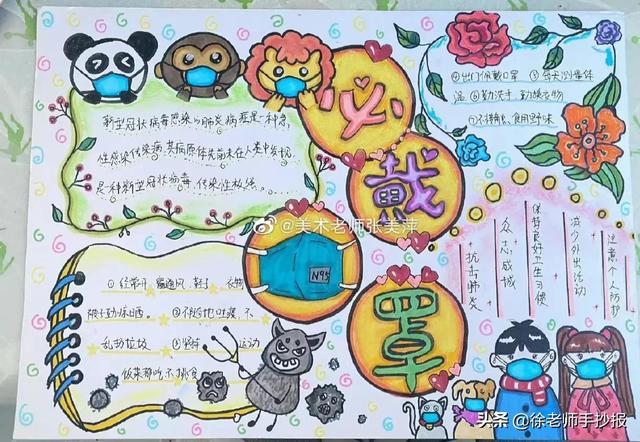 必
戴
罩
新型冠状病毒感染的肺炎病症是一种急
性感染传染病,其病原体先前未在人类中发现,
是一种新型冠状病毒,传染性极强。
④出门佩戴口罩 ⑤每天测量体
温 ⑥勤洗手,勤换衣物
⑦不接触、食用野味
注意个人防护
减少外出活动
保持良好卫生习惯
众志成城
抗击肺炎
N95
①经常开窗通风,鞋子、衣物
被子勤晾晒。②不随地吐痰,不
乱扔垃圾 ③坚持 运动
饭菜 不挑食
@美术老师张美萍
头条 @徐老师手抄报